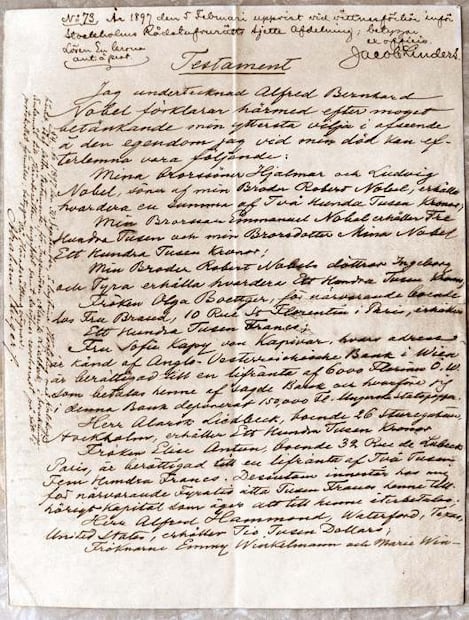 No 73. År 1897 den 5 Februari uppvist vid vittnesförhör inför
Stockholms Rådstufvurätts sjette Afdelning; betygar
Lösen En krona
ex officio.
Jacob Kinders
Testament
Jag undertecknad Alfred Bernhard
Nobel förklarar härmed efter moget
betänkande min yttersta vilja i afseende
å den egendom jag vid min död kan ef-
terlemna vara följande:
Mina Brorssöner Hjalmar och Ludvig
Nobel, söner af min Broder Robert Nobel, erhålla
hvardera en summa af Två Hundra Tusen Kronor;
Min Brorsson Emmanuel Nobel erhåller Tre
Hundra Tusen och min Brorsdotter Mina Nobel
Ett Hundra Tusen Kronor;
Min Broder Robert Nobels döttrar Ingeborg
och Tyra erhålla hvardera Ett Hundra Tusen Kronor;
Fröken Olga Boettger, för närvarande boende
hos Fru Brand, 10 Rue St Florentin i Paris, erhåller
Ett Hundra Tusen Francs;
Fru Sofie Kapy von Kapivar, hvars adress
är känd af Anglo-Oesterreichische Bank i Wien
är berättigad till en lifränta af 6000 Florins Ö.W.
som betalas henne af sagde Bank och hvarför jag
i denna Bank deponerat 150,000 Fl. i Ungerska Statspapper;
Herr Alarik Liedbeck, boende 26 Sturegatan,
Stockholm, erhåller Ett Hundra Tusen Kronor;
Fröken Elise Antun, boende 32 Rue de Lubeck,
Paris, är berättigad till en lifränta af Två Tusen
Fem Hundra Francs. Desutom innestår hos mig
för närvarande Fyratio åtta Tusen Francs henne till-
hörigt kapital som ägas att till henne återbetalas;
Herr Alfred Hammond, Waterford, Texas,
United States, erhåller Tio Tusen Dollars;
Fröknarne Emmy Winkelmann och Marie Win-